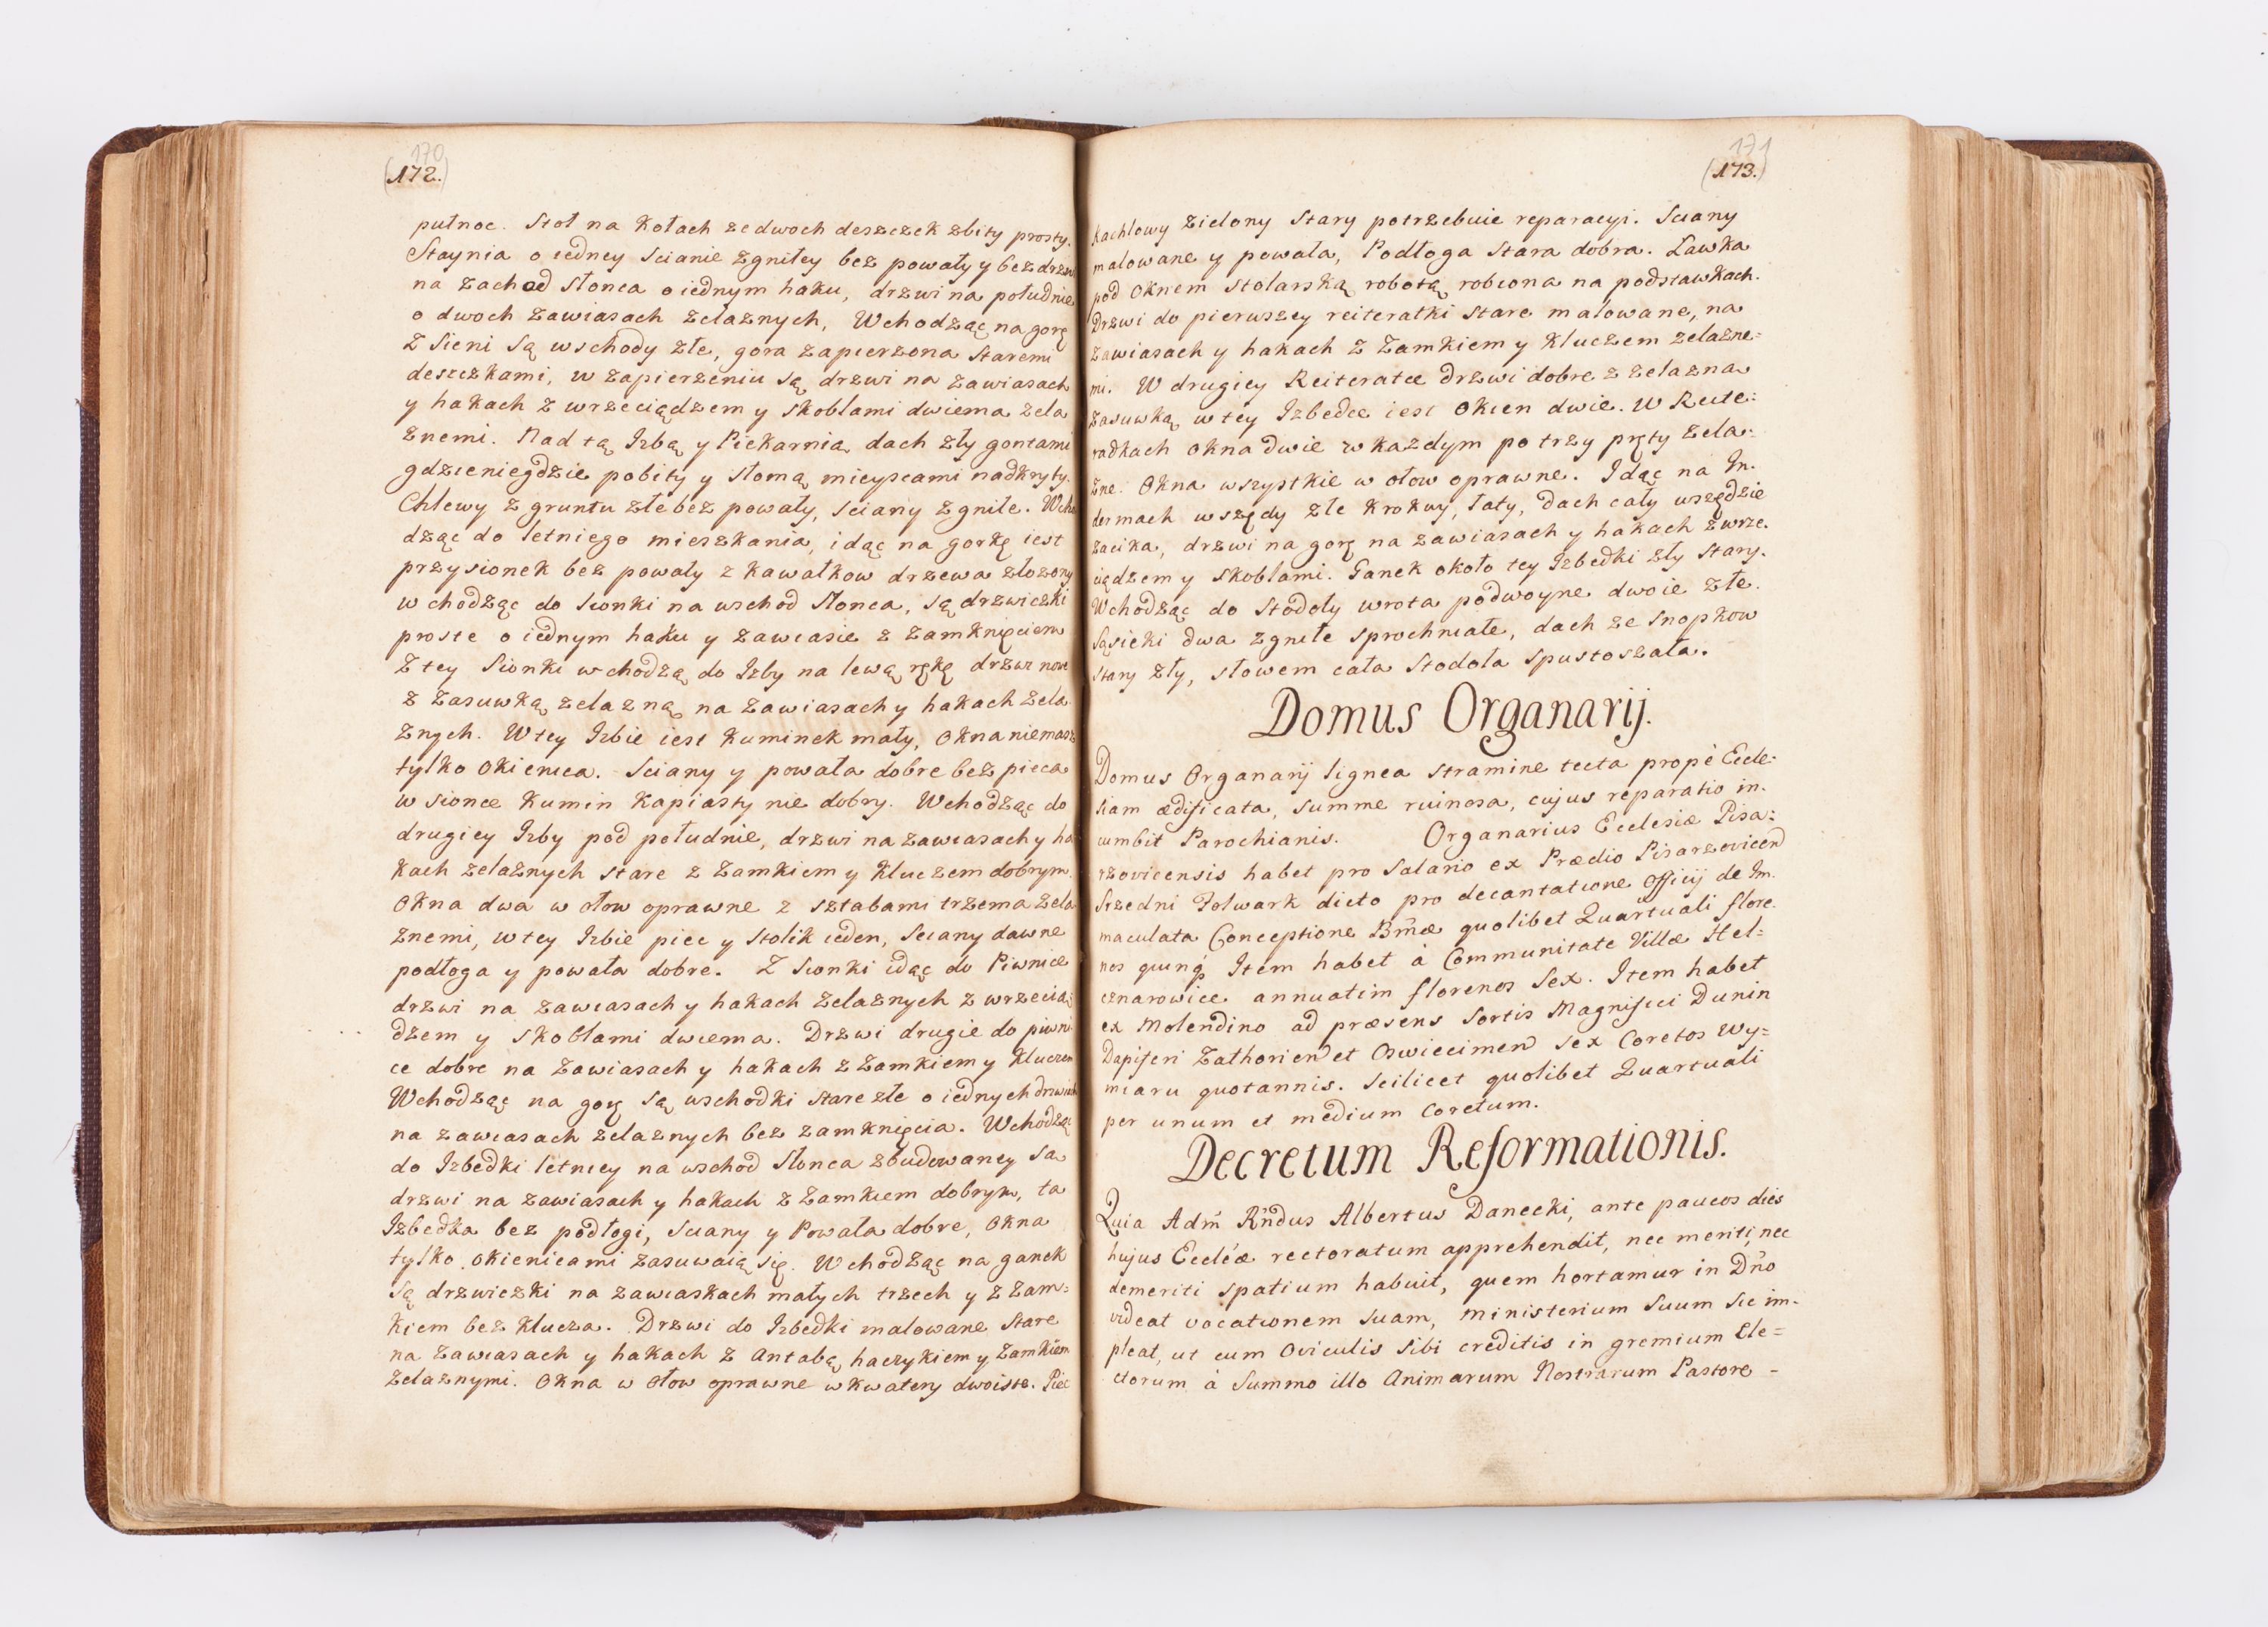 170
(172.)
pułnoc. Stoł na Kołach ze dwoch deszczek zbity prosty.
Staynia o iedney scianie zgniłey bez powały y bez drzwi
na zachod słonca o iednym haku, drzwi na południe
o dwoch zawiasach zelaznych, Wchodząc na gorę
Z sieni są wschody złe, gora zapierzona staremi
deszczkami, w zapierzeniu są drzwi na zawiasach
y hakach z wrzeciądzem y skoblami dwiema zela
znemi. Nad tą Izbą y Piekarnią dach zły gontami
gdzieniegdzie pobity y słomą mieyscami nadkryty.
Chlewy z gruntu złe bez powały, sciany zgniłe. Wcho
dząc do letniego mieszkania, idąc na gorkę iest
przysionek bez powały z kawałkow drzewa złozony
wchodząc do sionki na wschod słonca, są drzwiczki
proste o iednym haku y zawiasie z zamknięciem
Z tey Sionki wchodzą do Izby na lewą rękę drzwi nowe
z zasuwką zelazną na zawiasach y hakach zela
znych. W tey Izbie iest kuminek mały, okna niemasz
tylko okienica. Sciany y powała dobre bez pieca
w sionce kumin kapiasty nie dobry. Wchodząc do
drugiey Izby pod południe, drzwi na zawiasach y ha
kach zelaznych stare z zamkiem y kluczem dobrym.
Okna dwa w ołow oprawne z sztabami trzema zela
znemi, w tey Izbie piec y stolik ieden, sciany dawne
podłoga y powała dobre. Z sionki idąc do Piwnice
drzwi na zawiasach y hakach zelaznych z wrzecią
dzem y skoblami dwiema. Drzwi drugie do piwni
ce dobre na zawiasach y hakach z zamkiem y kluczem
Wchodząc na gorę są wschodki stare złe o iednych drzwiach
na zawiasach zelaznych bez zamknięcia. Wchodząc
do Izbedki letniey na wschod słonca zbudowaney sa
drzwi na zawiasach y hakach z zamkiem dobrym, ta
Izbedka bez podłogi, sciany y Powała dobre, okna
tylko okienicami zasuwaią się. Wchodząc na ganek
są drzwiczki na zawiaskach małych trzech y z zam=
kiem bez klucza. Drzwi do Izbedki malowane stare
na zawiasach y hakach z antabą haczykiem y zamkiem
zelaznymi. Okna w ołow oprawne w kwatery dwoiste. Piec
171
(173.)
kachlowy zielony stary potrzebuie reparacyi. Sciany
malowane y powała, Podłoga stara dobra. Ławka
pod oknem stolarską robotą robiona na podstawkach.
Drzwi do pierwszey reiteratki stare malowane, na
zawiasach y hakach z zamkiem y kluczem zelazne=
mi. W drugiey Reiteratce drzwi dobre z zelazna
zasuwką w tey Izbedce iest okien dwie. W Reite=
radkach okna dwie w kazdym po trzy pręty zela=
zne. Okna wszystkie w ołow oprawne. Idąc na In.
dermach wszędy złe krokwy, łaty, dach cały wszędzie
zacika, drzwi na gorę na zawiasach y hakach z wrze.
ciądzem y skoblami. Ganek około tey Izbedki zły stary.
Wchodząc do stodoły wrota podwoyne dwoie złe.
Sąsieki dwa zgniłe sprochniałe, dach ze snopkow
stary zły, słowem cała stodoła spustoszała.
Domus Organarij.
Domus Organarij lignea stramine tecta propè Eccle=
siam ædificata, summe ruinosa, cujus reparatio in.
cumbit Parochianis. Organarius Ecclesiæ Pisa=
rzovicensis habet pro salario ex Prædio Pisarzovicen
Srzedni Folwark dicto pro decantatione Officij de Im.
maculata Conceptione Bmæ quolibet Quartuali flore.
nos quinq. Item habet à Communitate Villæ Hel=
cznarowice annuatim florenos sex. Item habet
ex Molendino ad præsens sortis Magnifici Dunin
Dapiferi Zathorien et Oswiecimen sex Coretos wy=
miaru quotannis. Scilicet quolibet Quartuali
per unum et medium coretum.
Decretum Reformationis.
Quia Adm Rndus Albertus Danecki, ante paucos dies
hujus Eccleæ rectoratum apprehendit, nec meriti, nec
demeriti spatium habuit, quem hortamur in Dno
videat vocationem suam, ministerium suum sic im-
pleat, ut cum Oviculis sibi creditis in gremium Ele=
ctorum à summo illo Animarum Nostrarum Pastore -